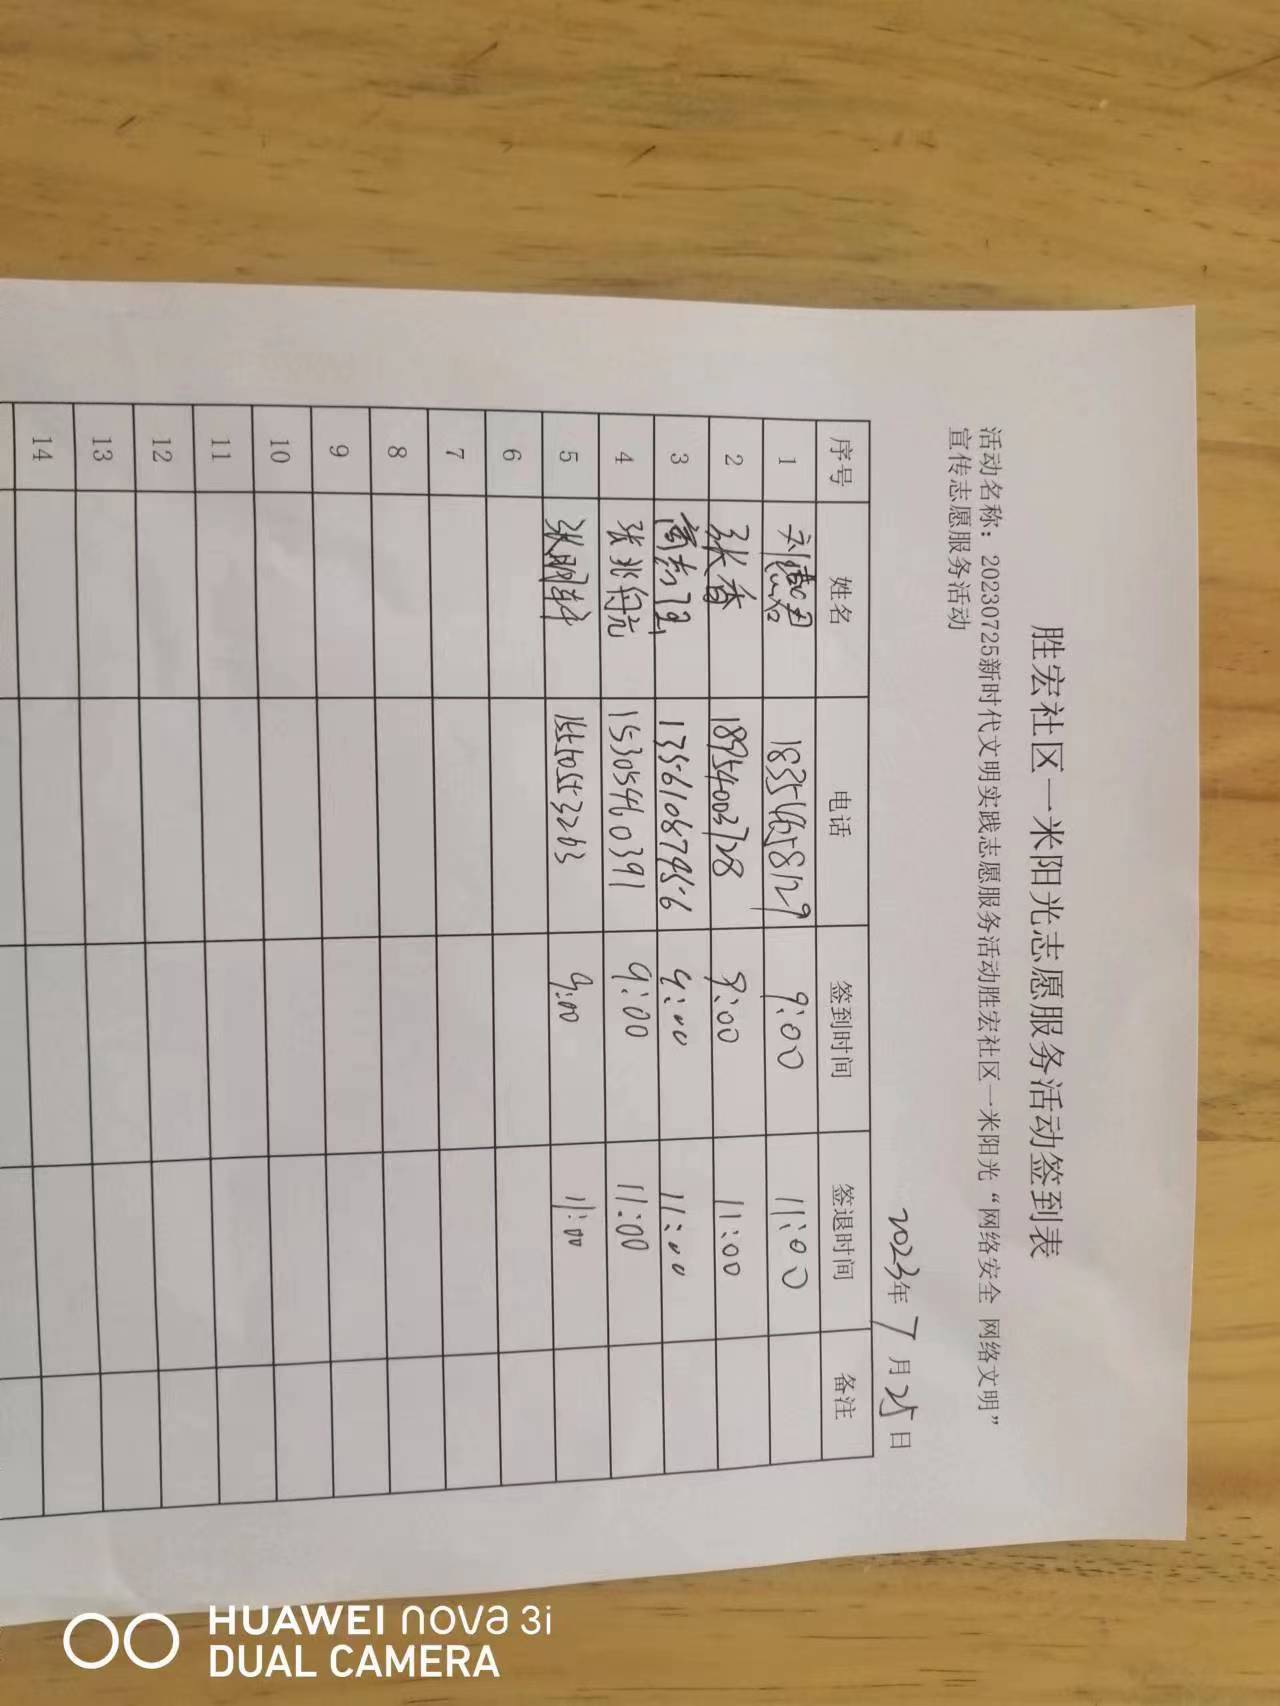 胜宏社区一米阳光志愿服务活动签到表
活动名称：20230725新时代文明实践志愿服务活动胜宏社区一米阳光“网络安全 网络文明”
宣传志愿服务活动
2023年7月25日
序号 姓名 电话 签到时间 签退时间 备注
1 9:00 11:00
2 张香 18954003728 9:00 11:00
3 13561087456 9:00 11:00
4 张兆舟元 15305460391 9:00 11:00
5 张明轩 15550553263 9:00 11:00
6
7
8
9
10
11
12
13
14
HUAWEI nova 3i
DUAL CAMERA